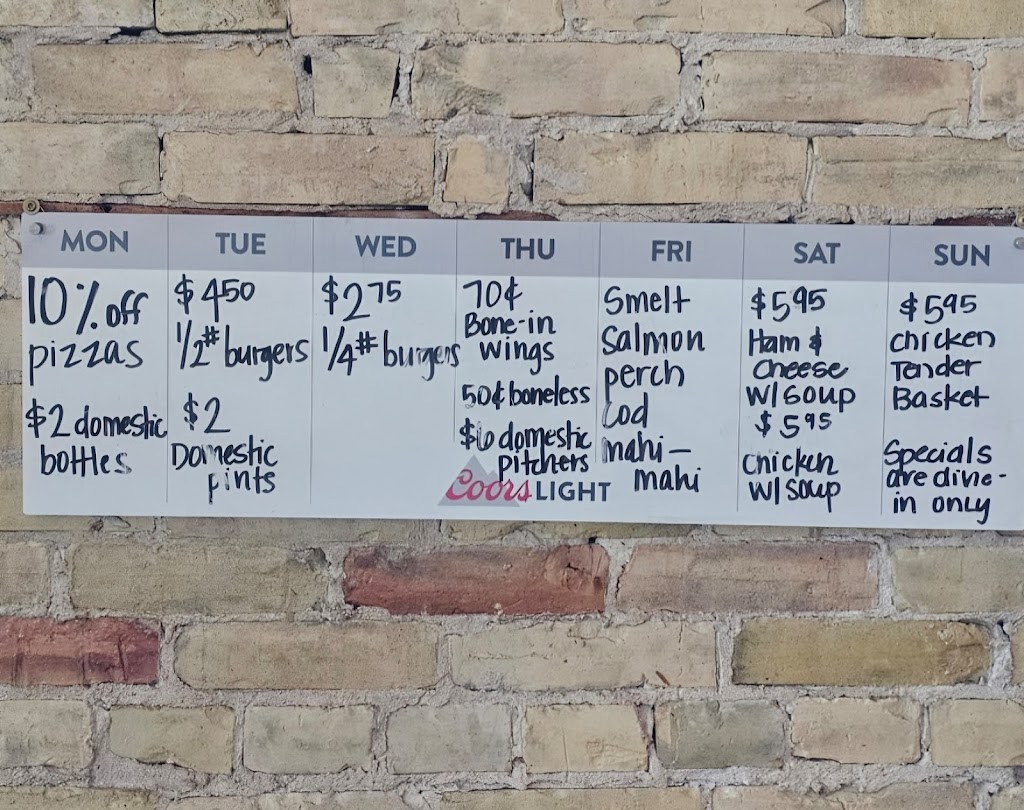 MON
10% off
pizzas
$2 domestic
bottles
TUE
$450
1/2# burgers
$2
Domestic
pints
WED
$275
1/4# burgers
THU
70¢
Bone-in
wings
50¢ boneless
$6 domestic
pitchers
Coors LIGHT
FRI
Smelt
Salmon
perch
Cod
mahi-
mahi
SAT
$595
Ham &
Cheese
w/ soup
$595
Chicken
w/ soup
SUN
$595
chicken
Tender
Basket
Specials
are dine-
in only